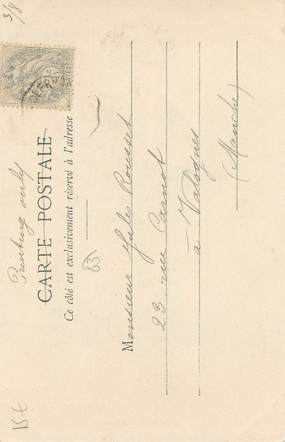 3/8
Printing only
CARTE POSTALE
Ce côté est exclusivement réservé à l'adresse
83
Monsieur Jules Rousset
23 rue Carnot
à Valognes
(Manche)
15€